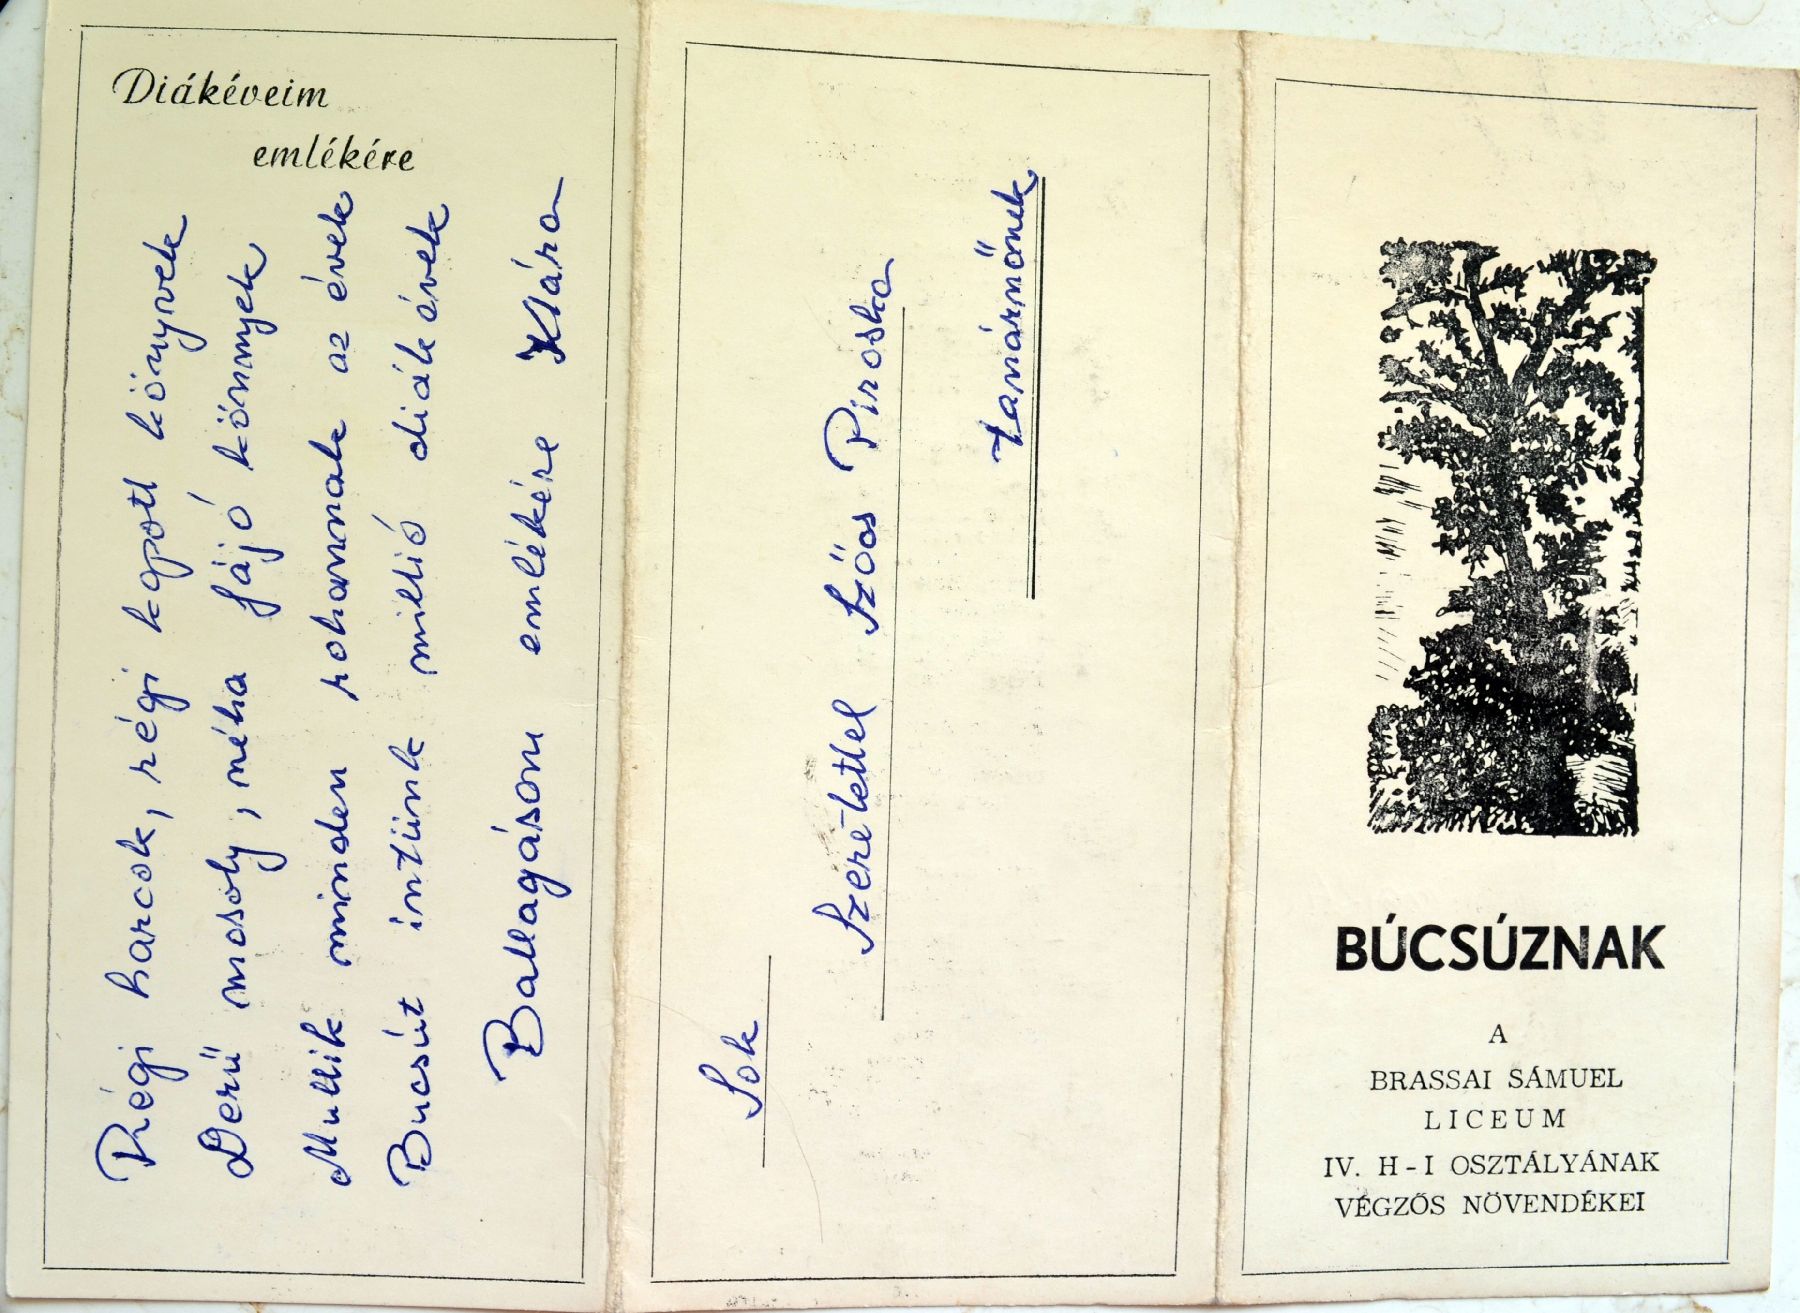 Diákéveim
emlékére
Régi harcok, régi kopott könyvek
Derű mosoly, néha fájó könnyek
Mullik minden rohannak az évek
Bucsút intünk millió diák évek
Ballagásom emlékére Klára
Sok
Szeretettel Szőcs Piroska
Tanárnőnek
BÚCSÚZNAK
A
BRASSAI SÁMUEL
LICEUM
IV. H-I OSZTÁLYÁNAK
VÉGZŐS NÖVENDÉKEI